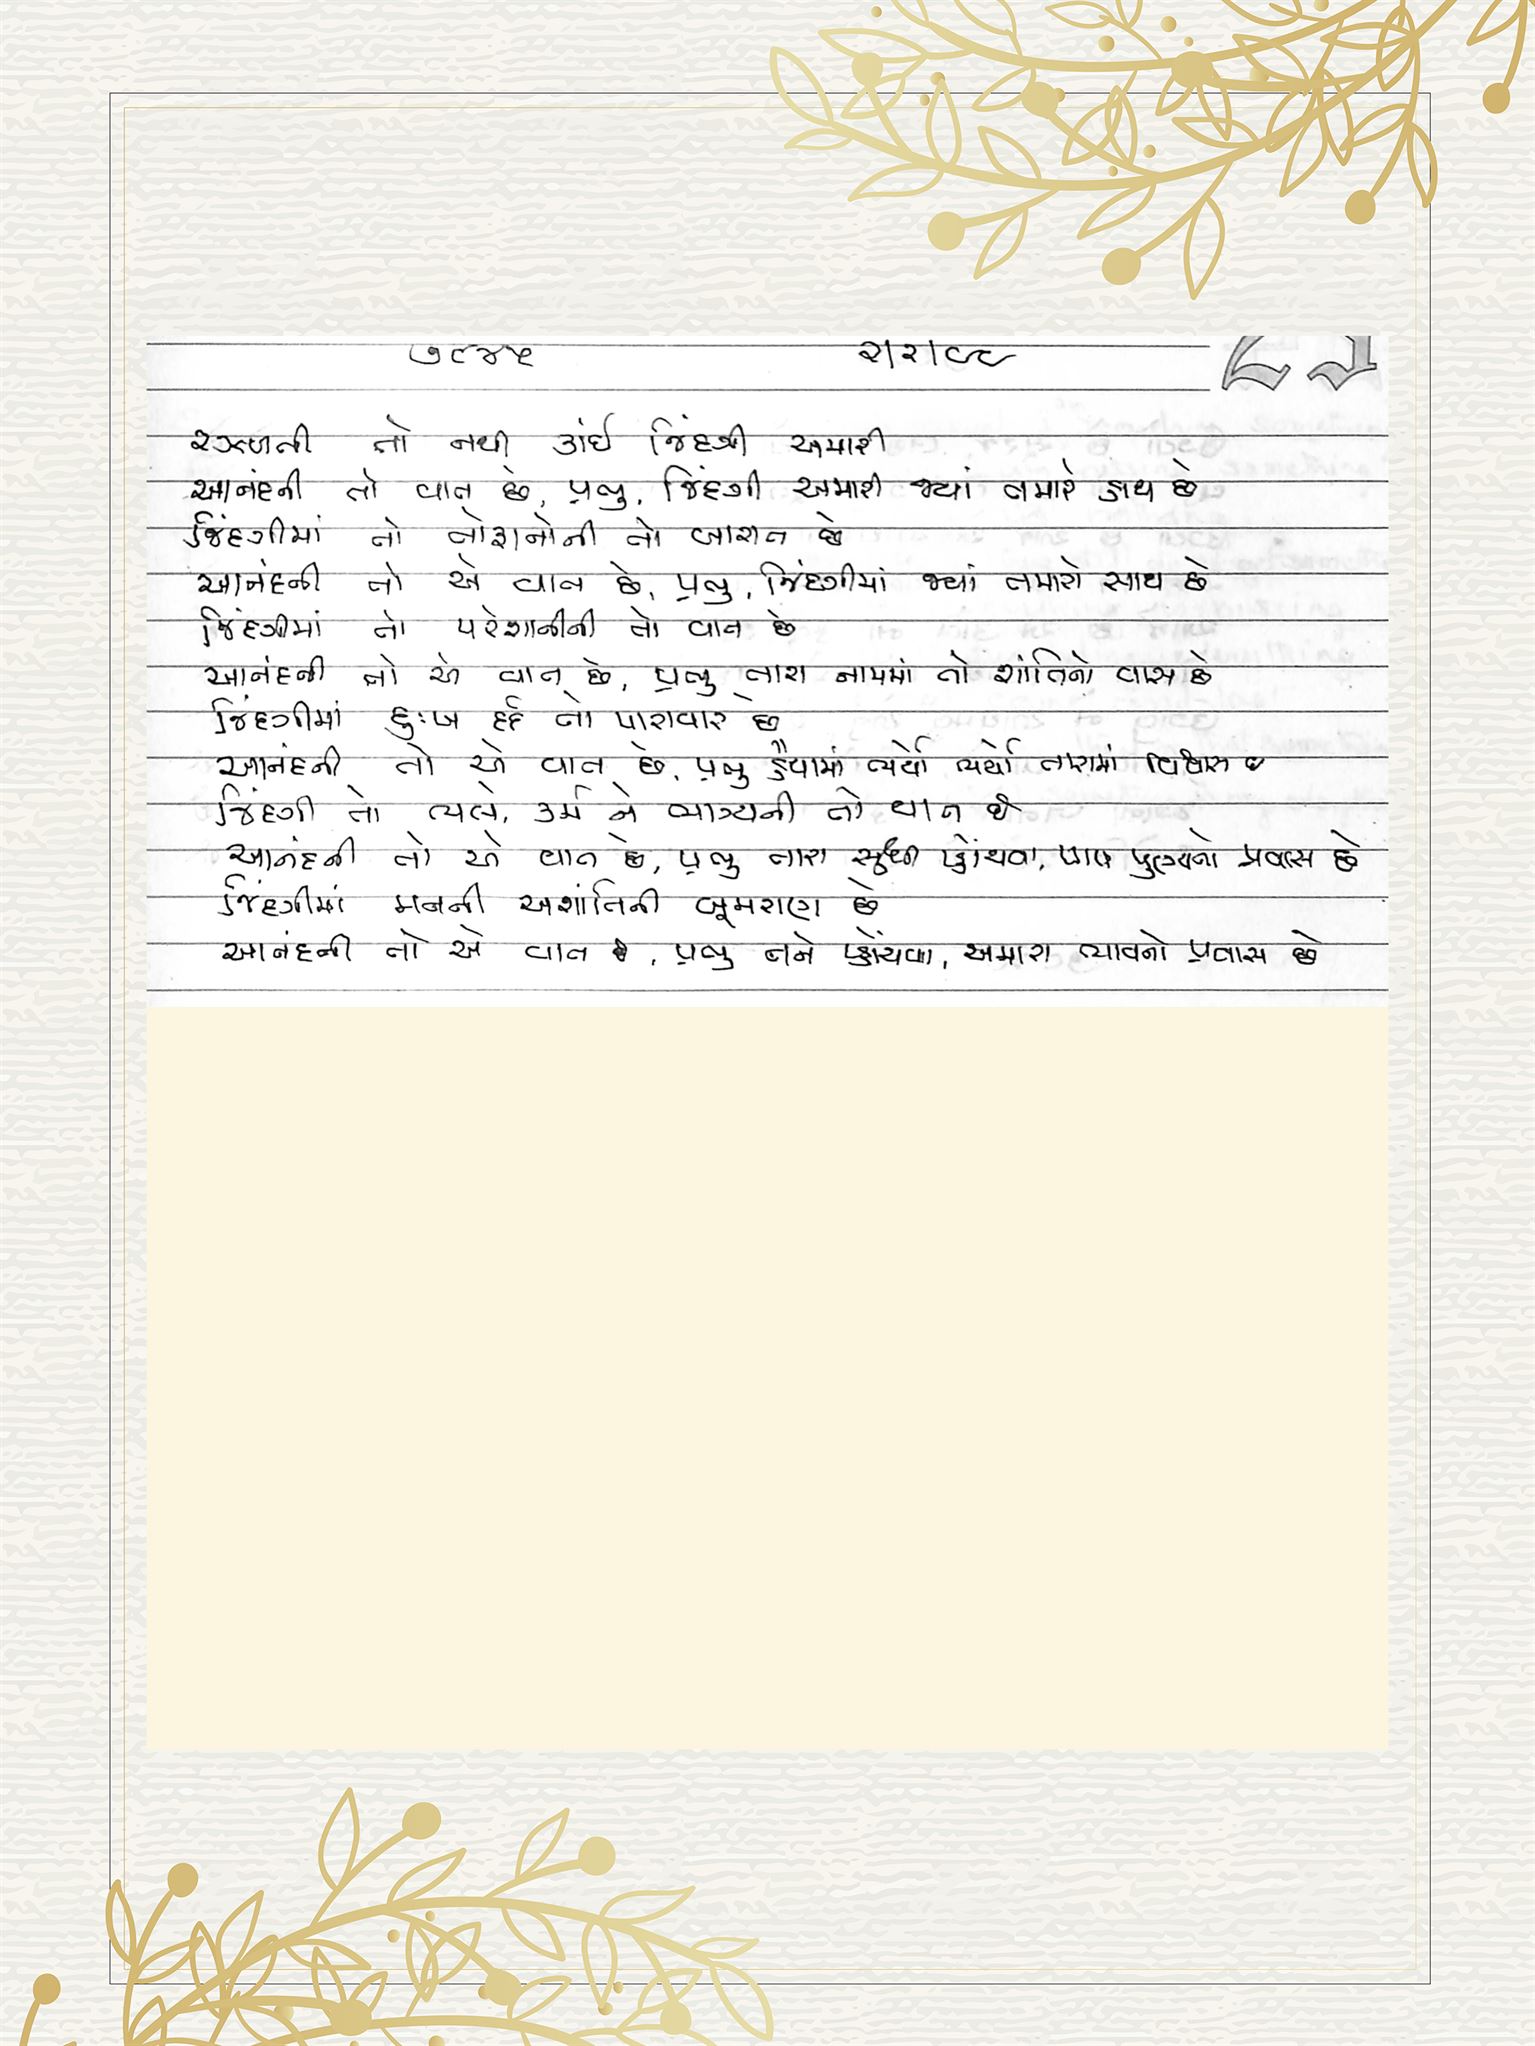 ૭૮૪૫ ૨/૨/૮૮
રઝળતી તો નથી કાંઈ જિંદગી અમારી
આનંદની તો વાત છે, પ્રભુ, જિંદગી અમારી જ્યાં તમારે હાથ છે
જિંદગીમાં તો તોફાનોની તો બારાત છે
આનંદની તો એ વાત છે, પ્રભુ, જિંદગીમાં જ્યાં તમારો સાથ છે
જિંદગીમાં તો પરેશાનીની તો વાત છે
આનંદની તો એ વાત છે, પ્રભુ તારા નામમાં તો શાંતિનો વાસ છે
જિંદગીમાં દુઃખ દર્દ નો પારાવાર છે
આનંદની તો એ વાત છે, પ્રભુ હૈયામાં ભર્યો ભર્યો તારામાં વિશ્વાસ છે
જિંદગી તો ભલે, કર્મ ને ભાગ્યની તો વાત છે
આનંદની તો એ વાત છે, પ્રભુ તારા સુધી પ્હોંચવા, પાપ પુણ્યનો પ્રવાસ છે
જિંદગીમાં મનની અશાંતિની બૂમરાણ છે
આનંદની તો એ વાત છે, પ્રભુ તને પ્હોંચવા, અમારા ભાવનો પ્રવાસ છે